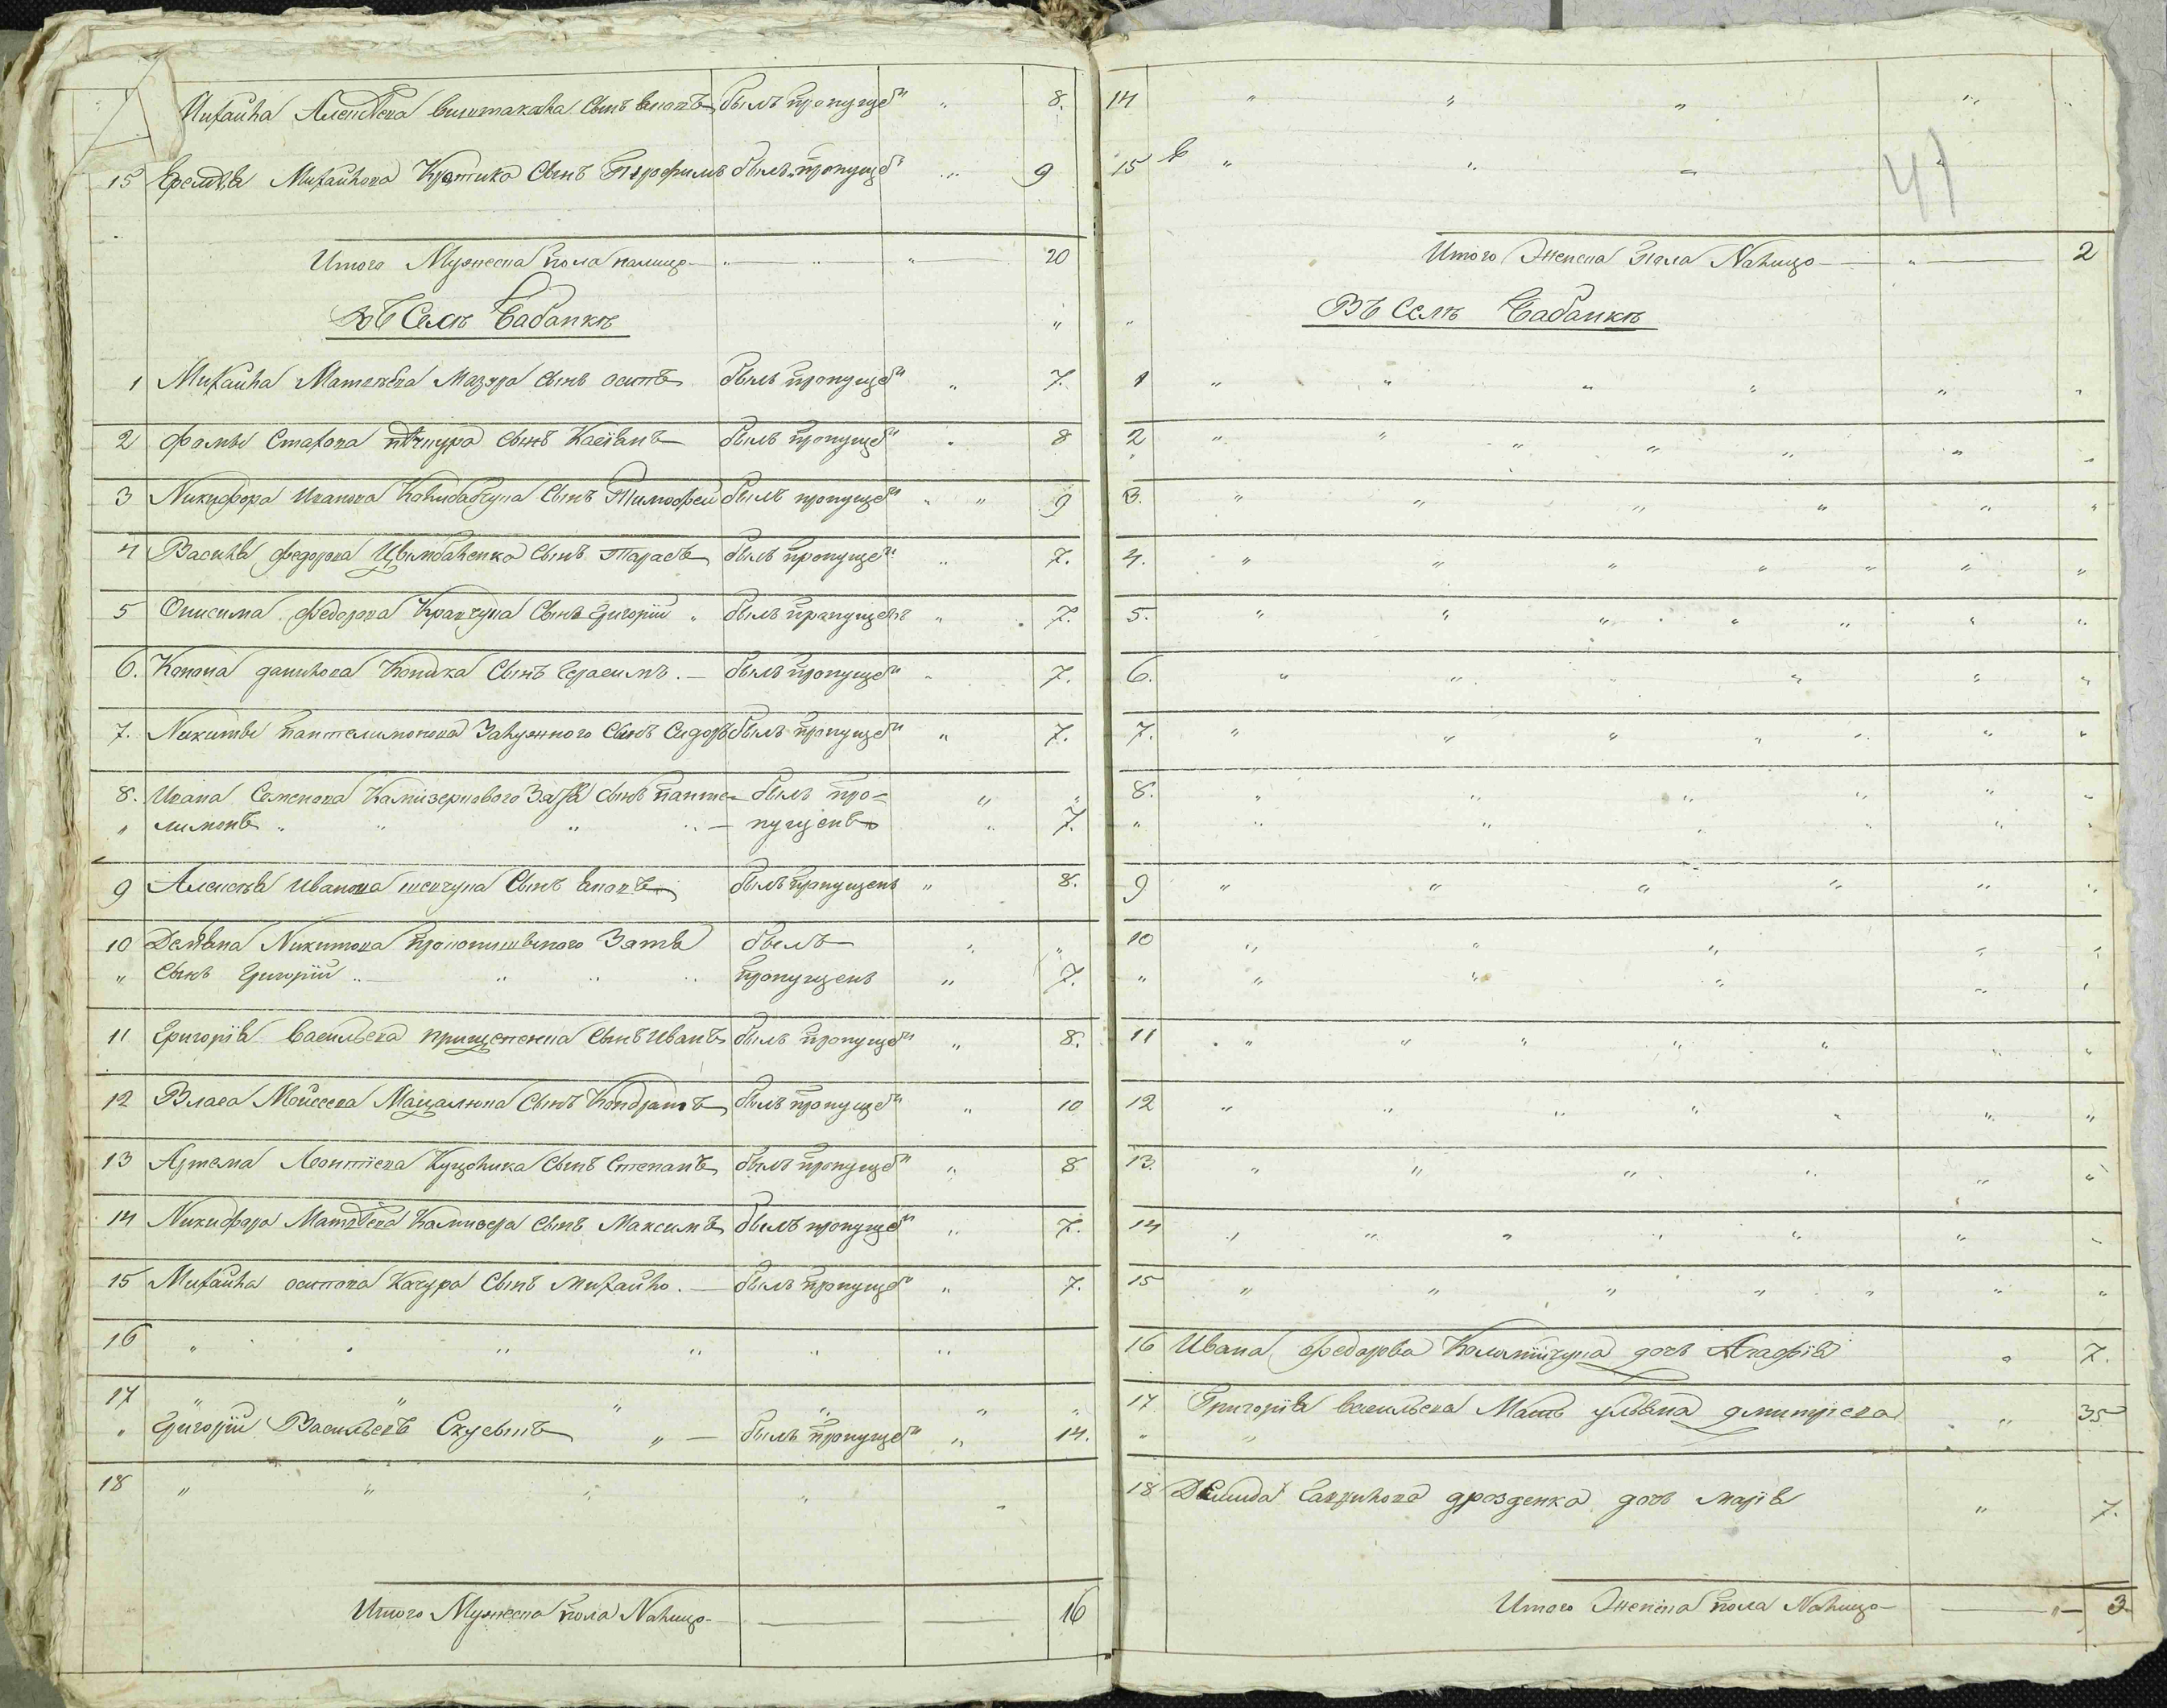 Михайла Алексѣева сынъ былъ пропущенъ " 8.
15 Еремѣя Михайлова сынъ Трофимъ былъ пропущенъ " 9
Итого Мужеска пола налицо 20
Въ Селѣ Бабанкѣ
1 Михайла Матвѣева Мазура сынъ осипъ былъ пропущенъ " 7.
2 фомы сынъ Касіянъ былъ пропущенъ " 8
3 Никифора Иванова сынъ Тимофей былъ пропущенъ " 9
4 Василія федорова Цымбаленка сынъ Тарасъ былъ пропущенъ " 7.
5 Онисима федорова Кравчука сынъ Григорій " былъ пропущенъ " 7.
6. Конона данилова сынъ Герасимъ. былъ пропущенъ " 7.
7. Никиты пантелимонова Залужного сынъ Сидоръ былъ пропущенъ " 7.
8. Ивана Семенова зятя сынъ панте- былъ про= " "
" лимонъ " " " пущенъ " 7.
9 Алексѣя Иванова шевчука сынъ былъ пропущенъ " 8.
10 Демяна Никитова зятя былъ " "
" сынъ Григорій " " " пропущенъ " 7.
11 Григорія васильева сынъ Иванъ былъ пропущенъ " 8.
12 Власа Мойсеева сынъ Кондратъ былъ пропущенъ " 10
13 Артема Леонтіева сынъ Степанъ былъ пропущенъ " 8
14 Никифора Матвѣева сынъ Максимъ былъ пропущенъ " 7.
15 Михайла осипова Качура сынъ михайло. былъ пропущенъ " 7.
16 " " " " " "
17 " " " " " "
" Григорій Васильевъ былъ пропущенъ " 14.
18 " " " " "
Итого Мужеска пола Налицо 16
14 " " " "
15 " " "
41
Итого Женска пола Налицо 2
Въ Селѣ Бабанкѣ
1 " " " " " "
2 " " " " " " "
3. " " " " " "
4. " " " " " " "
5. " " " " " " "
6. " " " " "
7. " " " " " " "
8. " " " " " "
" " " " " " "
9 " " " " " "
10 " " " " "
" " " " " "
11 " " " " " " "
12 " " " " " " "
13. " " " " " "
14 " " " " " " "
15 " " " " " " "
16 Ивана федорова дочь Агафія " 7.
17 Григорія васильева Мать ульяна дмитріева " 35
18 Демида гаврилова дрозденка дочь марія " 7.
Итого Женска пола Налицо 3